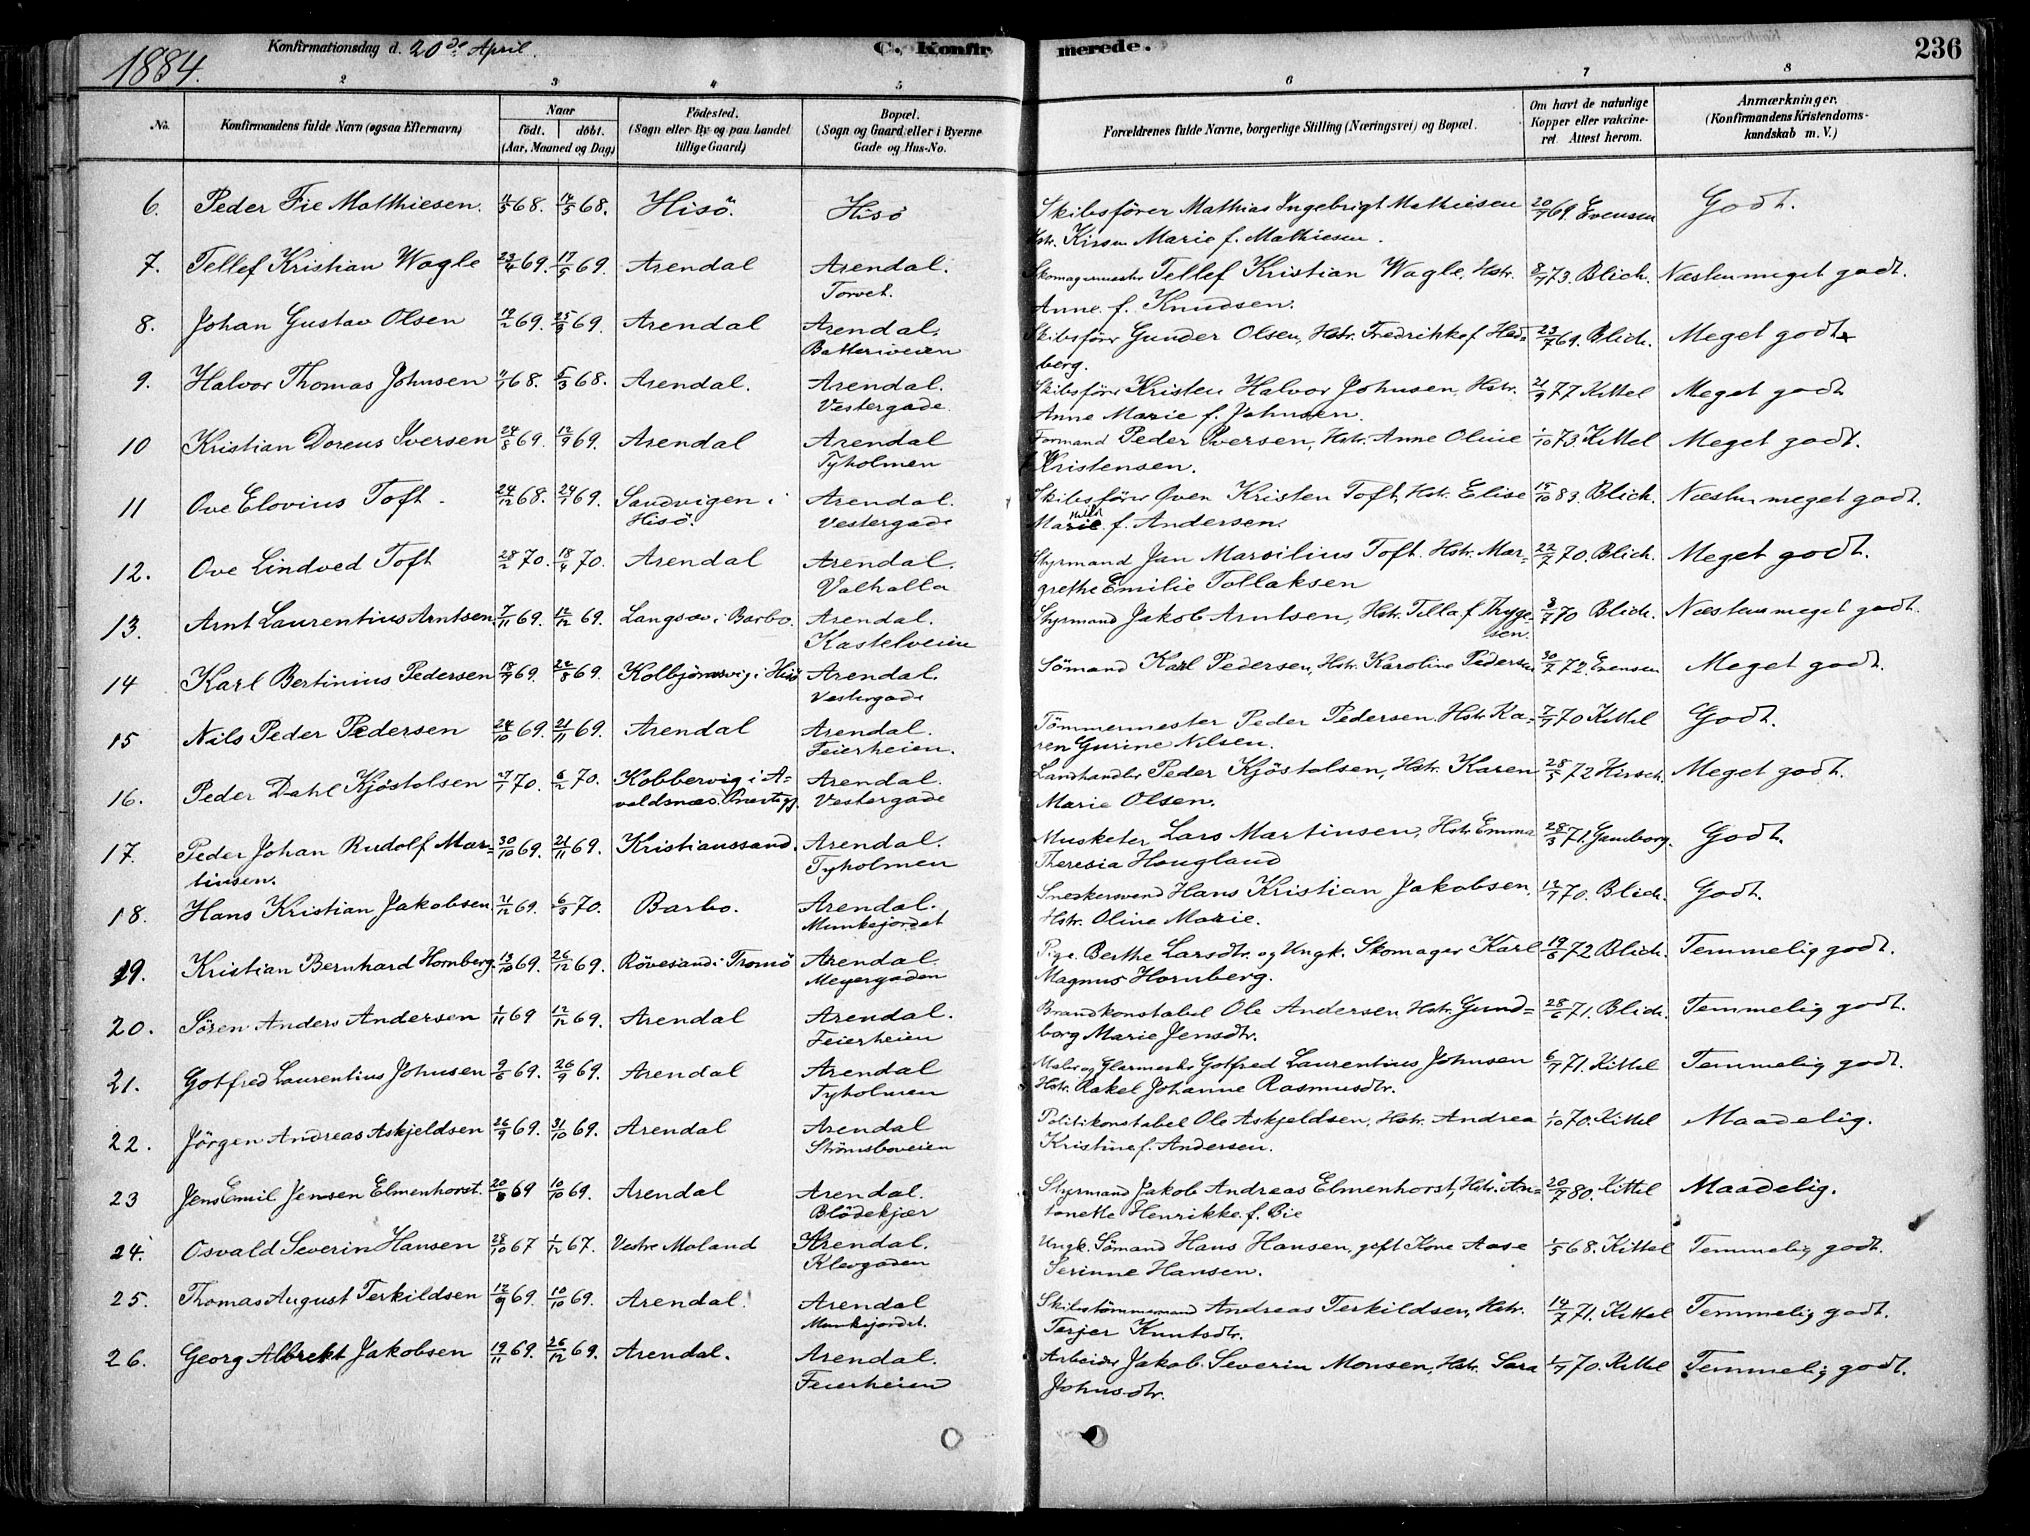 1884.
Konfirmationsdag d. 20de April.
C. Konfirmerede.
236
2 3 4 5 6 7 8
No.
Konfirmandens fulde Navn (ogsaa Efternavn)
Naar
födt. döbt.
(Aar, Maaned og Dag)
Födested.
(Sogn eller By og paa Landet
tillige Gaard)
Bopæl.
(Sogn og Gaard eller i Byerne
Gade og Hus-No.
Forældrenes fulde Navne, borgerlige Stilling (Næringsvei) og Bopæl.
Om havt de naturlige
Kopper eller vakcine-
ret. Attest herom.
Anmærkninger.
(Konfirmandens Kristendoms-
kundskab m. V.)
6. Peder Fie Matthiesen. 11/5 68. 14/5 68. Hisö. Hisö Skibsförer Mathias Ingebrigt Mathiesen 20/7 69. Evensen Godt.
Hstr. Kirsten Marie f. Mathiesen.
7. Tellef Kristian Wagle 23/4 69. 17/5 69. Arendal Arendal. Skomagermester Tellef Kristian Wagle, Hstr. 8/7 73. Blich. Næsten meget godt.
Torvet. Anne f. Knudsen.
8. Johan Gustav Olsen 19/2 69. 25/3 69. Arendal Arendal. Skibsförer Gunder Olsen, Hstr. Fredrikke f. Hed- 23/7 69. Blich. Meget godt
Batteriveien berg.
9. Halvor Thomas Johnsen 11/1 68. 5/3 68. Arendal. Arendal. Skibsförer Kristen Halvor Johnsen, Hstr. 21/9 77 Kittel Meget godt
Vestergade. Anne Marie f. Johnsen.
10 Kristian Doreus Iversen 24/8 69. 12/9 69. Arendal Arendal Formand Peder Iversen, Hstr. Anne Oline 1/10 73 Kittel Meget godt.
Tyholmen f. Kristensen.
11 Ove Elovius Toft. 24/12 68. 24/1 69. Sandvigen i Arendal. Skibsförer Oven Kristen Toft, Hstr. Elise 15/10 83. Blich. Næsten meget godt.
Hisö. Vestergade Marie f. Andersen.
12. Ove Lindved Toft 28/2 70. 18/4 70. Arendal Arendal. Styrmand Jan Marsilius Toft. Hstr. Mar- 22/7 70. Blich. Meget godt.
Valhalla grethe Emilie Tollaksen
13. Arnt Laurentius Arntsen 7/11 69. 12/12 69. Langsæv i Barbo. Arendal. Styrmand Jakob Arntsen, Hstr. Tilla f. Thyge- 8/7 70 Blich. Næsten meget godt.
Kastelveien sen.
14 Karl Bertinius Pedersen 18/7 69. 22/8 69. Kolbjörnsvig i Hisö Arendal. Sömand Karl Pedersen, Hstr. Karoline Pedersen 30/7 72. Evensen Meget godt.
Vestergade
15 Nils Peder Pedersen 24/10 69. 21/11 69. Arendal Arendal. Tömmermester Peder Pedersen. Hstr. Ka- 7/7 70 Kittel Godt.
Feierheien. ren Gurine Nilsen.
16. Peder Dahl Kjöstolsen 27/1 70. 6/2 70. Kobbervig i A- Arendal. Landhandler Peder Kjöstolsen, Hstr. Karen 28/5 72 Hirsch. Meget godt.
valdsnæs. Vestergade Marie Olsen.
17. Peder Johan Rudolf Mar- 30/10 69. 21/11 69. Kristianssand. Arendal. Musketer Lars Martinsen, Hstr. Emma 28/3 71. Gamborg. Godt.
tinsen. Tyholmen Theresia Hougland
18. Hans Kristian Jakobsen 21/12 69. 6/3 70. Barbo. Arendal. Snedkersvend Hans Kristian Jakobsen. 12/7 70. Blich. Godt.
Munkejordet Hstr. Oline Marie.
19. Kristian Bernhard Hornberg. 13/10 69. 26/12 69. Rövesand i Tromö Arendal. Pige Berthe Larsdtr. og Ungk. Skomager Karl 19/6 72 Blich. Temmelig godt.
Meyergaden Magnus Hornberg.
20. Sören Anders Andersen 1/11 69 12/12 69. Arendal Arendal. Brandkonstabel Ole Andersen Hstr. Gund- 28/6 71. Blich. Temmelig godt.
Feierheien borg Marie Jensdtr.
21. Gotfred Laurentius Johnsen 9/6 69. 26/9 69. Arendal Arendal Maler og Glarmester Gotfred Laurentius Johnsen 6/7 71. Kittel Temmelig godt.
Tyholmen Hstr. Rakel Johanne Rasmusdtr.
22. Jörgen Andreas Askjeldsen 26/9 69. 31/10 69. Arendal Arendal Politikonstabel Ole Askjeldsen, Hstr. Andrea 1/10 70. Kittel Maadelig.
Strömsboveien Kristine f. Andersen.
23 Jens Emil Jensen Elmenhorst. 20/8 69 10/10 69. Arendal Arendal. Styrmand Jakob Andreas Elmenhorst, Hstr. An- 20/7 80. Kittel Maadelig.
Blödekjær tonette Henrikke f. Bie
24. Osvald Severin Hansen 28/10 67 1/12 67. Vestre Moland Arendal. Ungk. Sömand Hans Hansen, gift Kone Aase 1/5 68. Kittel Temmelig godt.
Klevgaden Serinne Hansen.
25. Thomas August Terkildsen 12/9 69. 10/10 69. Arendal. Arendal Skibstömmermand Andreas Terkildsen, Hstr. 14/7 71. Kittel Temmelig godt.
Munkejordet. Terjer Knutsdtr.
26. Georg Albrekt Jakobsen 19/11 69. 26/12 69. Arendal. Arendal. Arbeider Jakob Severin Monsen, Hstr. Sara 1/7 70. Kittel Temmelig godt.
Feierheien Johnsdtr.